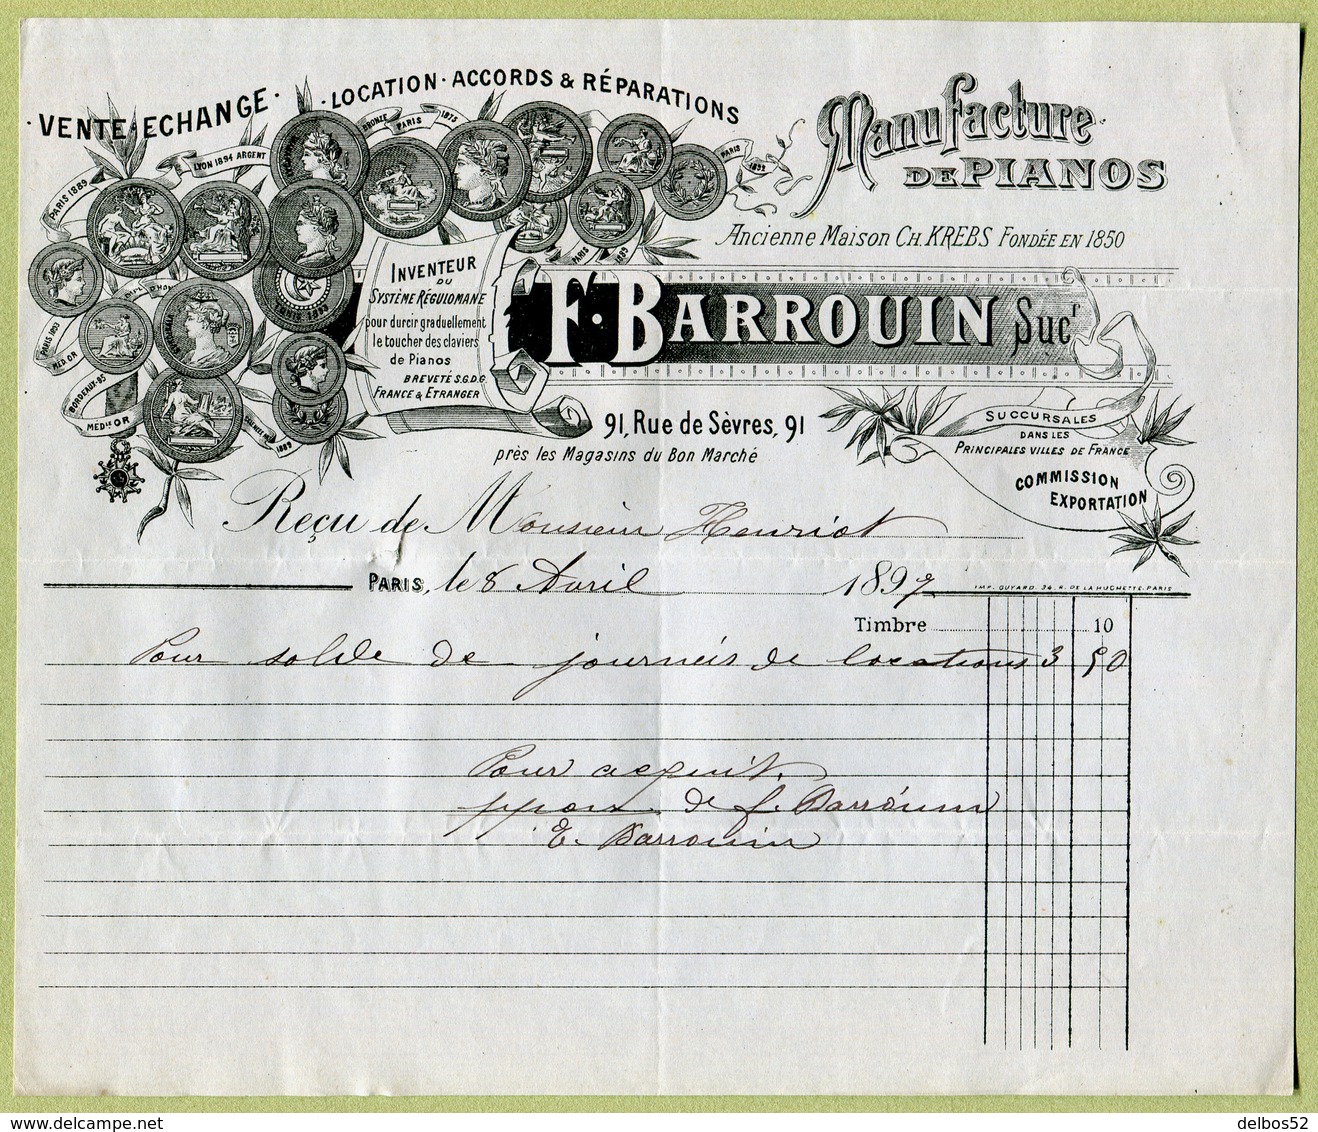 · VENTE · ECHANGE · LOCATION · ACCORDS & RÉPARATIONS
Manufacture
DE PIANOS
Ancienne Maison CH. KREBS FONDÉE EN 1850
F. BARROUIN Sucr
PARIS 1889
LYON 1894 ARGENT
BRONZE PARIS 1875
PARIS 1892
PARIS 1889
PARIS 1893
MED OR
BORDEAUX-95
MEDLE OR
1889
INVENTEUR
DU
SYSTÈME RÉGULOMANE
pour durcir graduellement
le toucher des claviers
de Pianos
BREVETÉ S.G.D.G.
FRANCE & ETRANGER
91, Rue de Sèvres, 91
près les Magasins du Bon Marché
SUCCURSALES
DANS LES
PRINCIPALES VILLES DE FRANCE
COMMISSION
EXPORTATION
Reçu de Monsieur Henriot
PARIS, le 8 Avril 1897
IMP. GUYARD. 34. R. DE LA HUCHETTE-PARIS
Timbre 10
Pour solde de journéés de locations 3 50
Pour acquit.
de f. Barrouin
E. Barrouin
delbos52